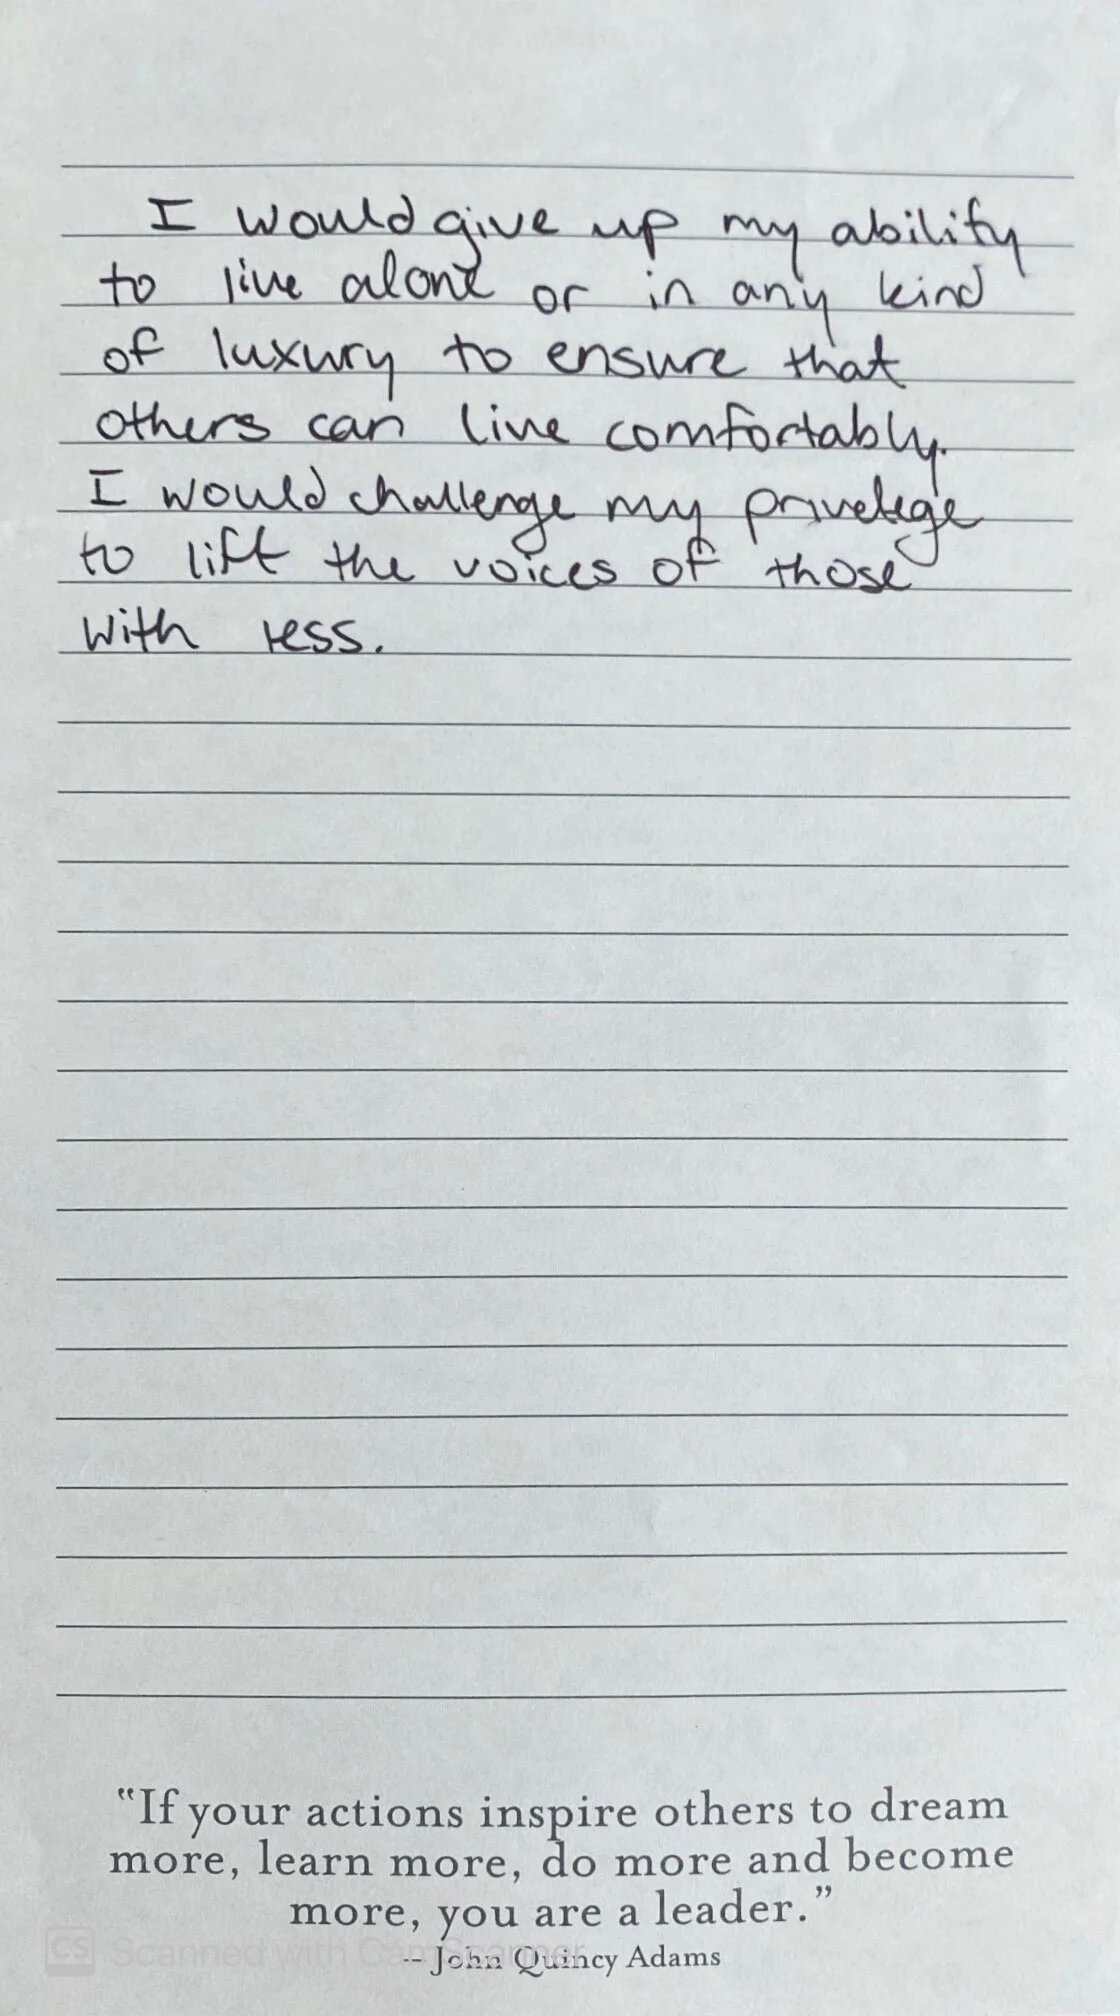 I would give up my ability
to live alone or in any kind
of luxury to ensure that
others can live comfortably.
I would challenge my privelege
to lift the voices of those
with less.
"If your actions inspire others to dream
more, learn more, do more and become
more, you are a leader."
-- John Quincy Adams
CS Scanned with CamScanner